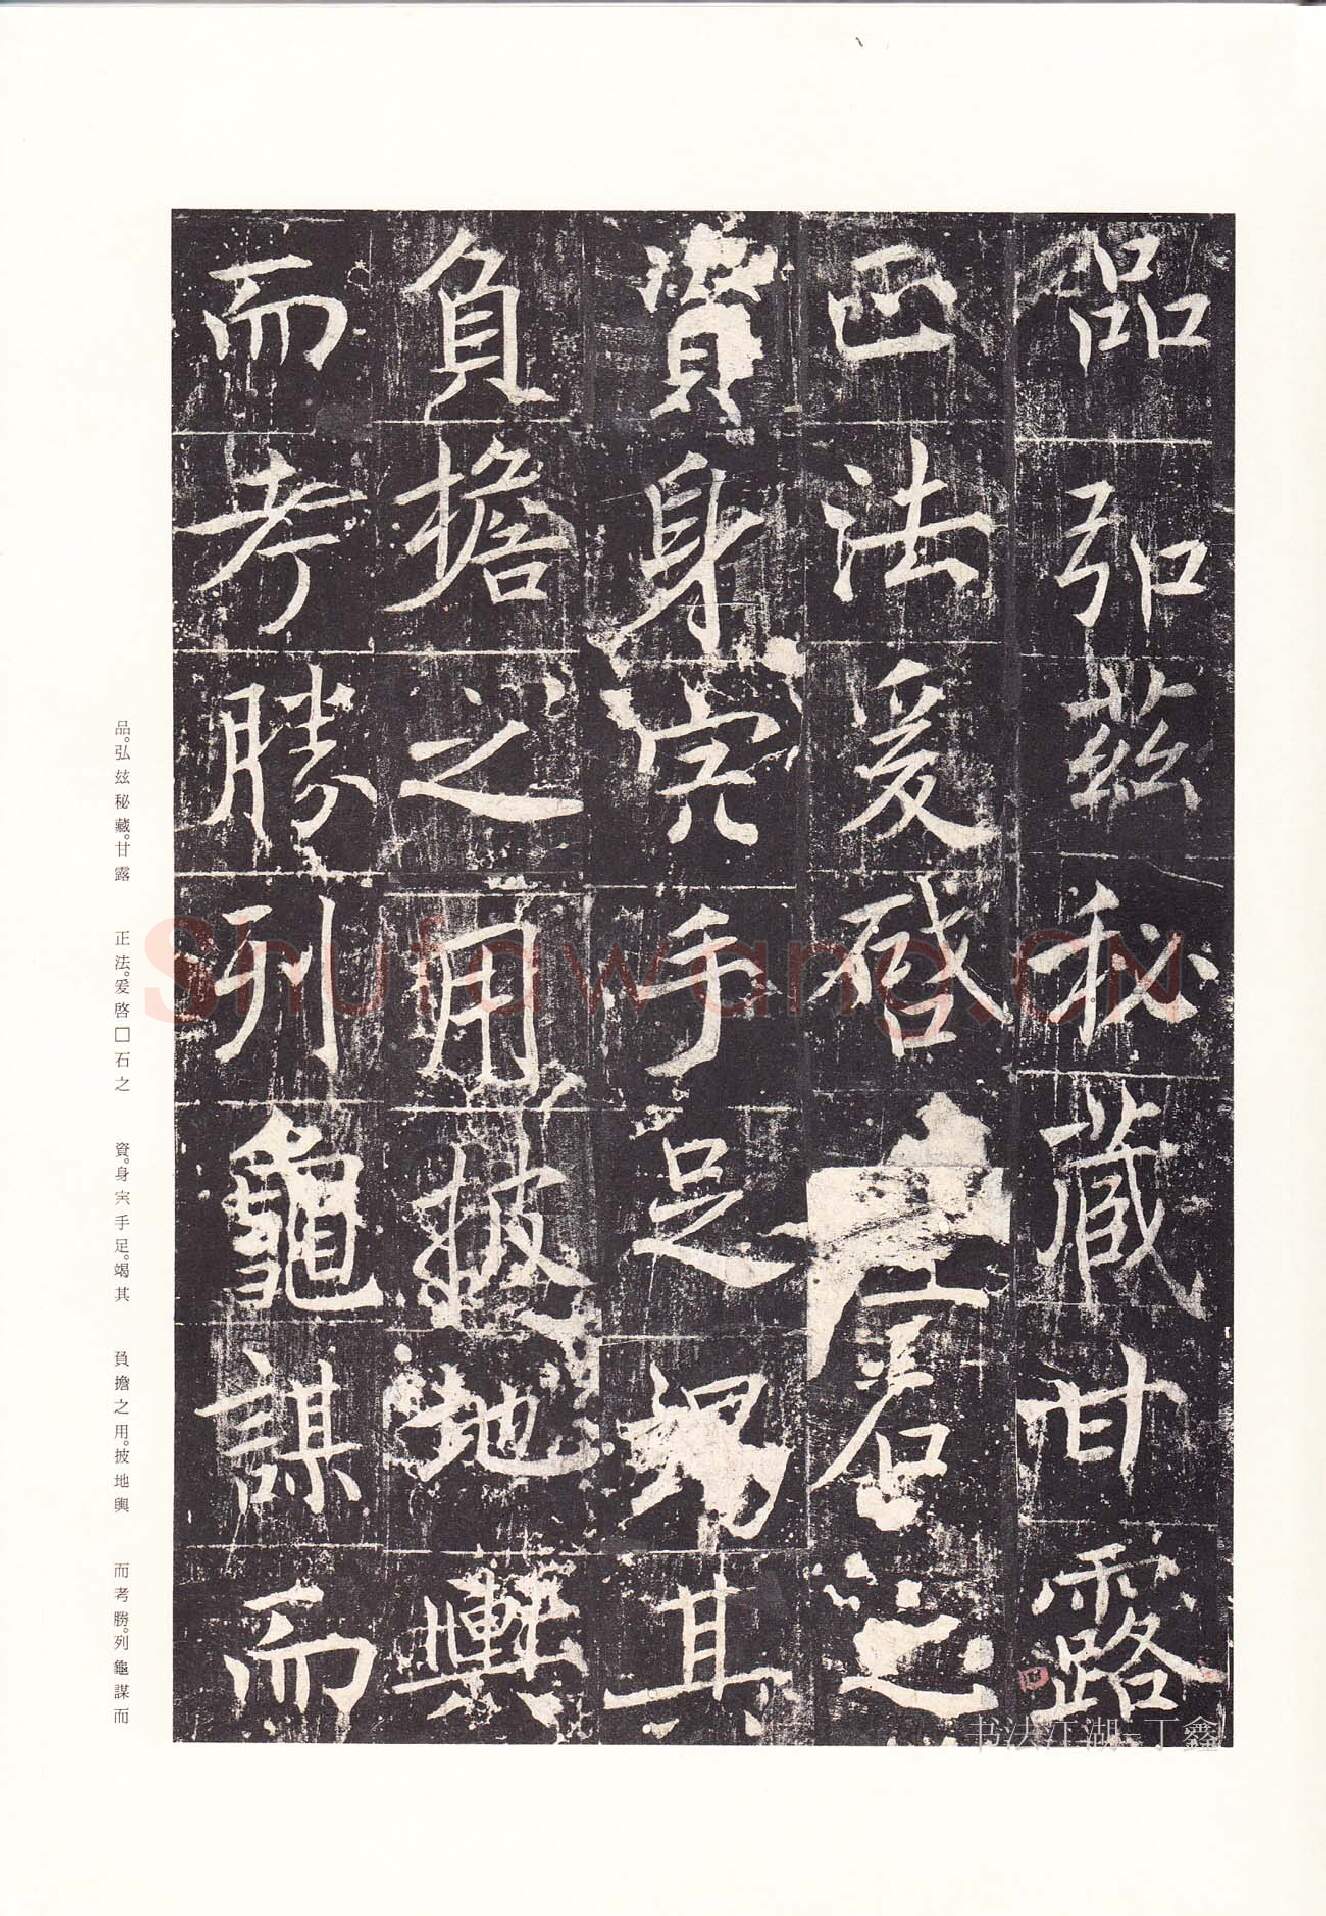 品弘茲秘藏甘露
正法爰啓石之
資身宍手足竭其
負擔之用披地輿
而考勝列龜謀而
品。弘玆秘藏。甘露　正法。爰啓□石之　資。身宍手足。竭其　負擔之用。披地輿　而考勝。列龜謀而
Shufawang.CN
书法江湖-丁鑫